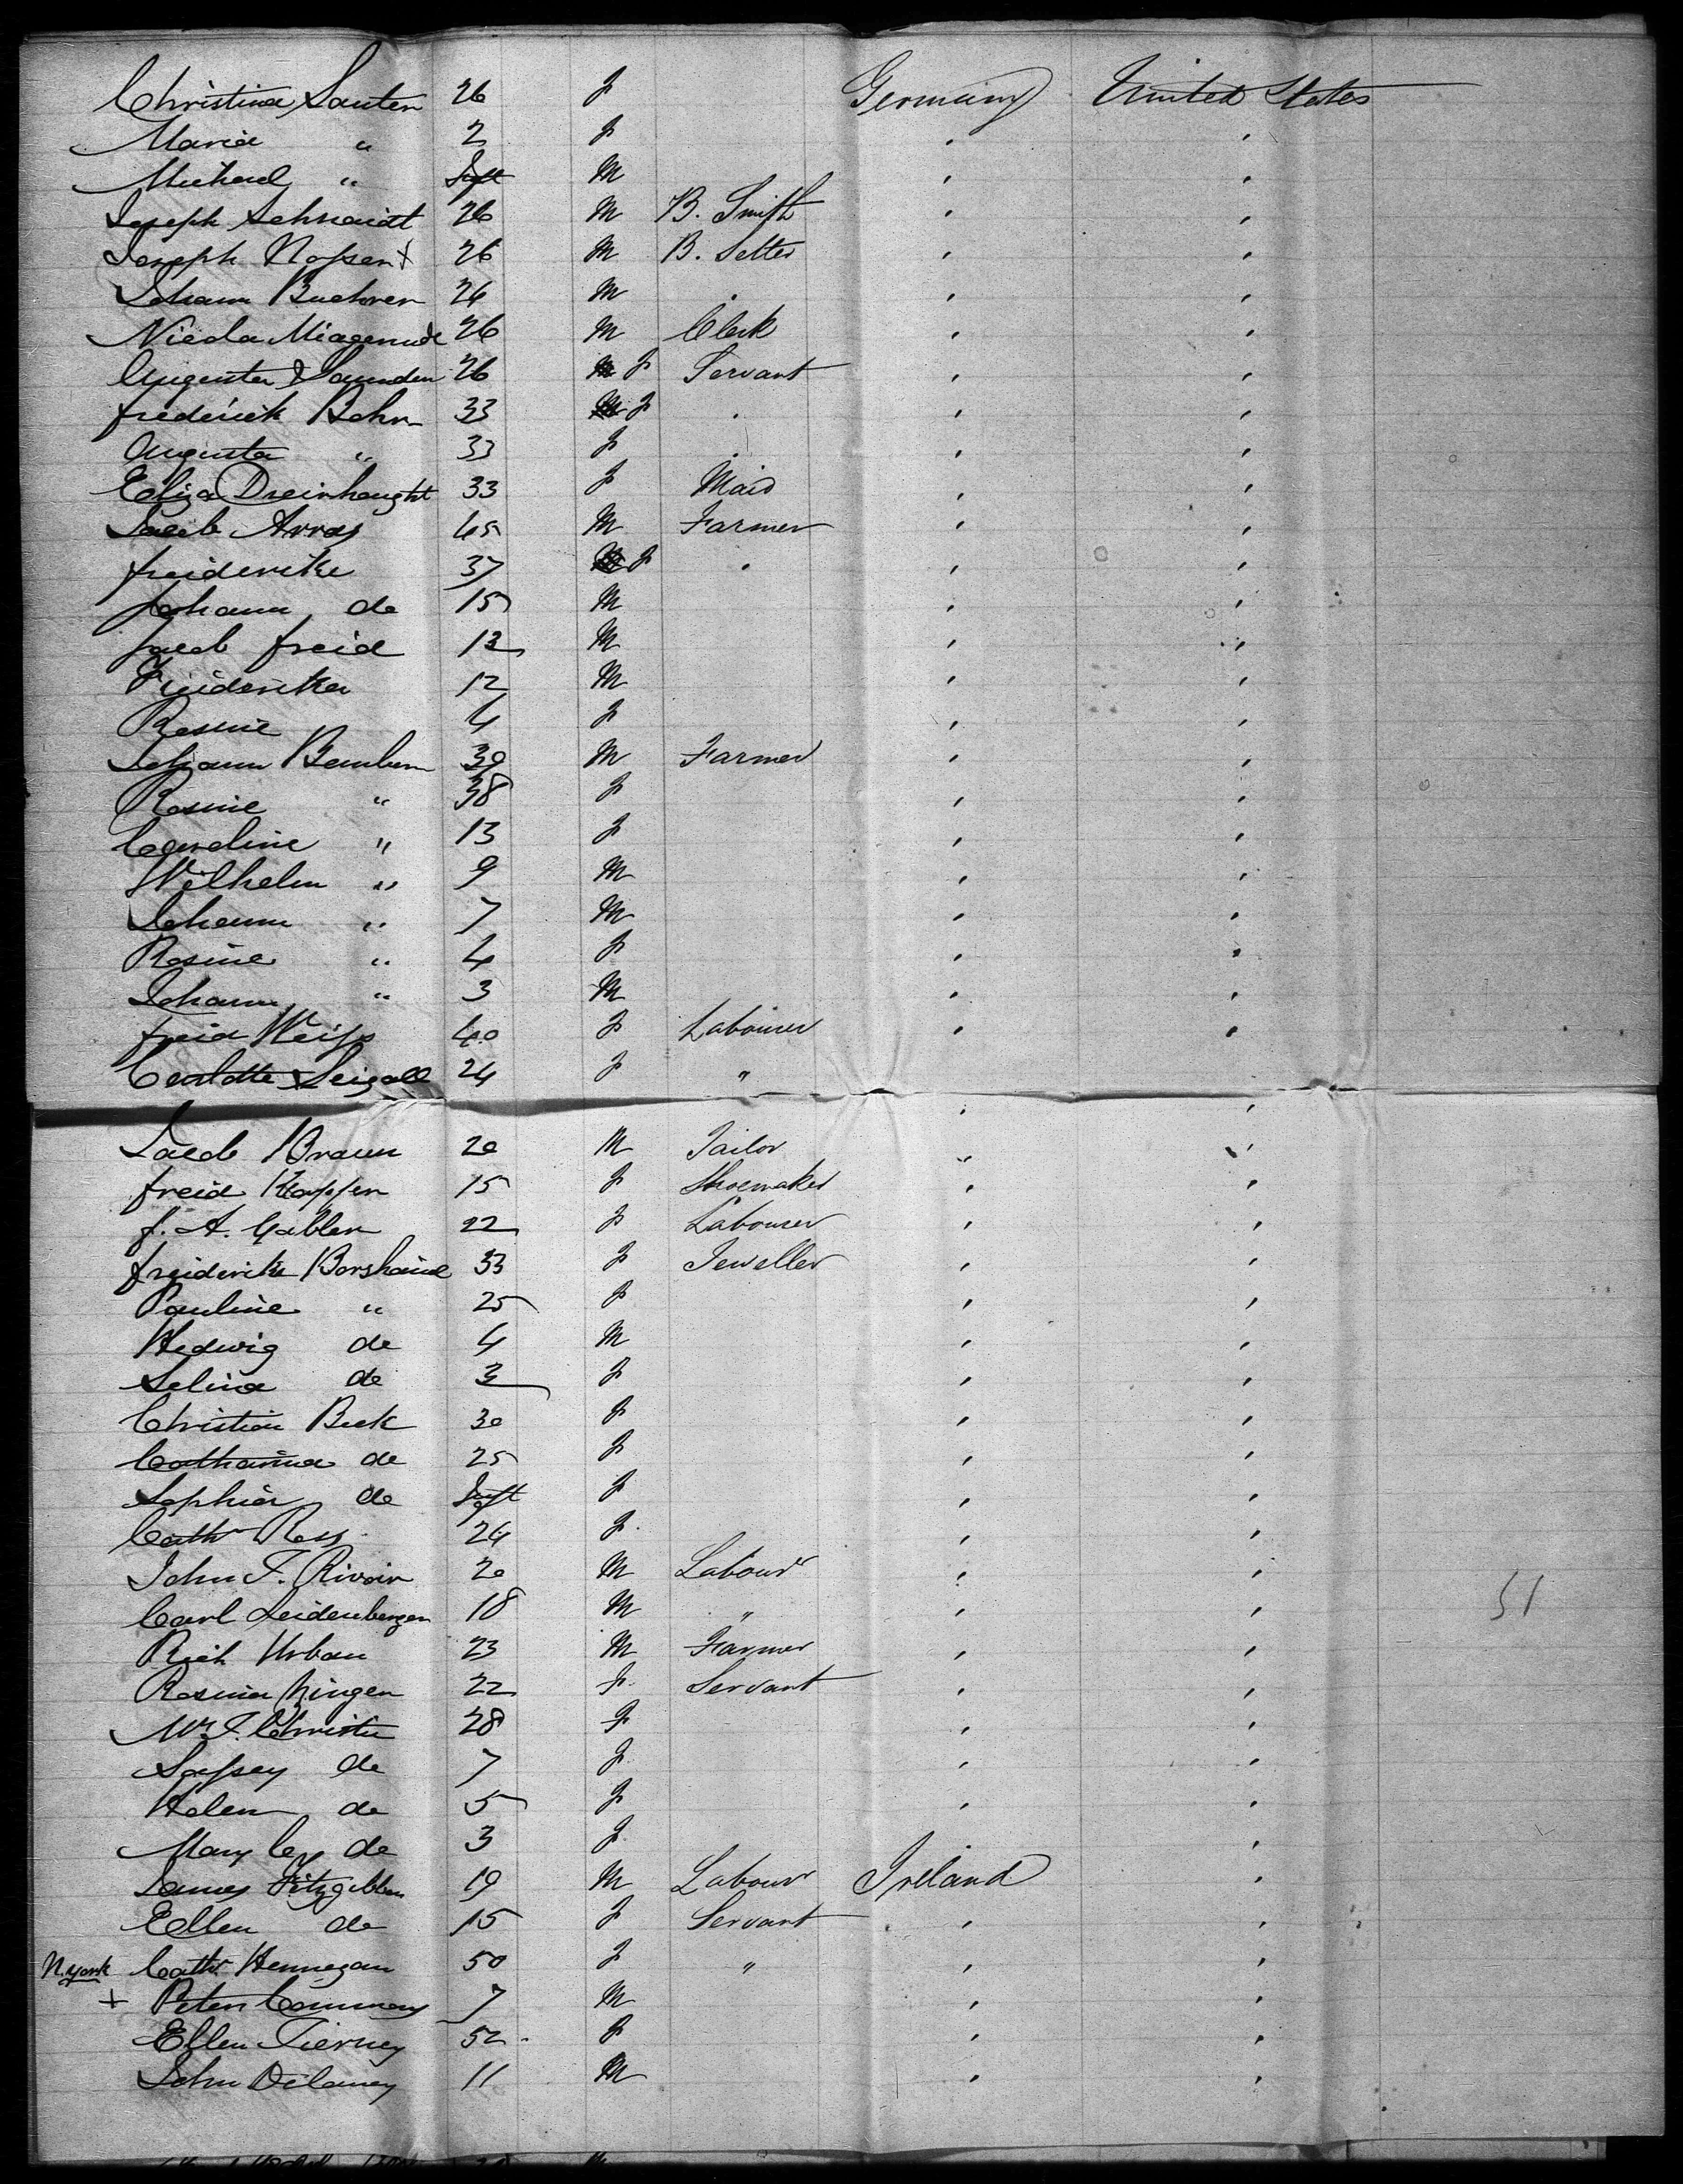 Christina Sauter 26 f Germany United States
Maria " 2 f ' '
Michael " Inft M ' '
Joseph Schmidt 26 M B. Smith ' '
Joseph 26 M B. Setter ' '
Johann Buehrer 26 M . ' '
26 M Clerk ' '
Augusta 26 f Servant ' '
frederick Behr 33 f . ' '
Augusta " 33 f . ' '
Eliza 33 f Maid ' '
Jacob Arras 45 M Farmer ' '
freiderike 37 f . ' '
Johann do 15 M ' '
Jacob freid 13 M ' '
Freiderika 12 M ' '
Rosine 4 f ' '
Johann 39 M Farmer ' '
Rosine " 38 f ' '
Caroline " 13 f ' '
Wilhelm " 9 M ' '
Johann " 7 M ' '
Rosine " 4 f ' '
Johann " 3 M ' '
freid Weiss 40 f Labourer ' '
Carlotte Seigall 24 f " ' '
Jacob Braun 20 M Tailor " '
freid 15 f Shoemaker ' '
f. A. Gabler 22 f Labourer ' '
freiderike 33 f Jeweller ' '
Pauline " 25 f ' '
Hedwig do 4 M ' '
Selina do 3 f ' '
Christian Beck 30 f ' '
Catharina do 25 f ' '
Sophia do Inft f ' '
Cath Ross 24 f ' '
John F. Rivoir 20 M Labour ' '
Carl Leidenberger 18 M " ' ' 51
Rich Urban 23 M Farmer ' '
Rosina 22 f Servant ' '
Christie 28 f ' '
do 7 f ' '
Helen do 5 f ' '
Mary do 3 f '
James Fitzgibbon 19 M Labour Ireland '
Ellen do 15 f Servant ' '
N. York Cath Hennegan 50 f " ' '
+ Peter 7 M ' '
Ellen Tierney 52 f ' '
John Delaney 11 M ' '